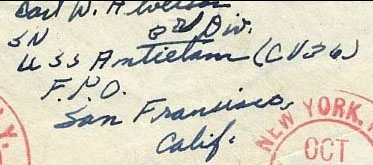 W. A.
SN 3rd Div.
USS Antietam (CV36)
F.P.O.
San Francisco,
Calif.
NEW YORK, N
OCT
Y.